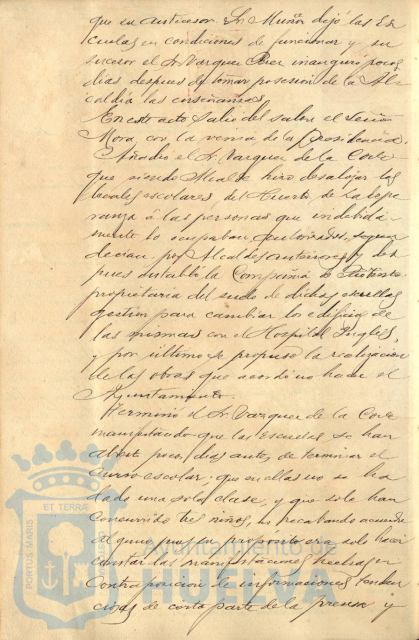 que su antecesor Sr. Muñoz dejó las Es
cuelas en condiciones de funcionar y su
sucesor el Sr. Vazquez Perez inauguró pocos
dias despues de tomar posesion de la Al
caldia las enseñanzas.
En este acto salió del salon el Señor
Mora con la venia de la Presidencia.
Añadió el Sr. Vazquez de la Corte
que siendo Alcalde hizo desalojar los
locales escolares, del Huerto de La Espe
ranza á las personas que indebida
mente lo ocupaban, autorizados, segun
decian, por Alcaldes anteriores y des
pues de la Compañia de Riotinto
propietaria del suelo de dichas escuelas
gestion para cambiar los edificios de
las mismas con el Hospital Ingles,
y por último se propuso la realizacion
de las obras que acordó no hacer el
Ayuntamiento.
Terminó el Sr. Vazquez de la Corte
manifestando que las Escuelas se han
abierto pocos dias antes de terminar el
curso escolar; que en ellas no se ha
dado una sola clase, y que solo han
concurrido tres niños, no recabando acuerdo
alguno pues su proposito era solo hacer
constar las manifestaciones hechas en
contraposicion de informaciones tenden
ciosas de corta parte de la prensa y
PORTUS MARIS ET TERRÆ
Ayuntamiento de
HUELVA